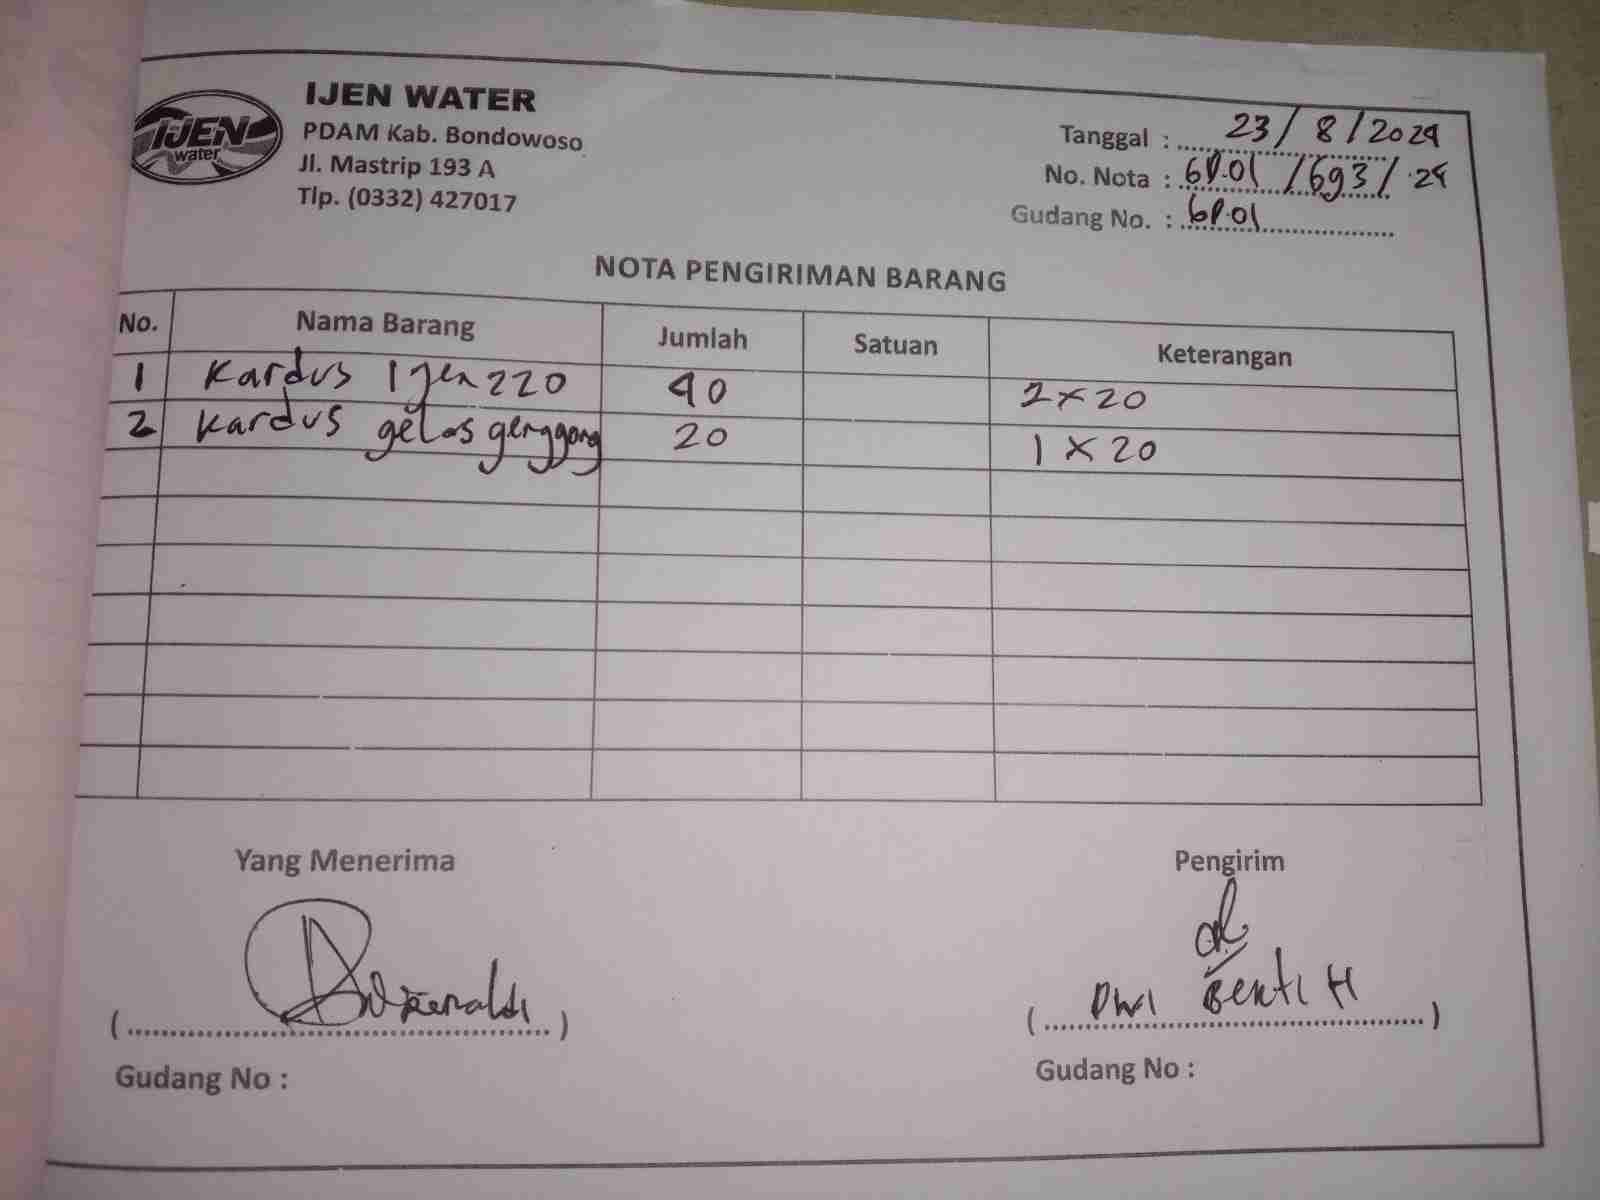 IJEN
water
IJEN WATER
PDAM Kab. Bondowoso
Jl. Mastrip 193 A
Tlp. (0332) 427017
Tanggal : 23/8/2024
No. Nota : 6P.01/693/24
Gudang No. : 6P.01
NOTA PENGIRIMAN BARANG
No. Nama Barang Jumlah Satuan Keterangan
1 Kardus Ijen 220 40 2 x 20
2 Kardus gelas genggong 20 1 x 20
Yang Menerima Pengirim
Dwi H
Gudang No : Gudang No :